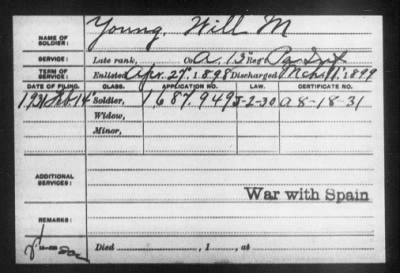 NAME OF SOLDIER: Young, Will M
SERVICE: Late rank, Co A, 13" Reg't Pa Inf
TERM OF SERVICE: Enlisted Apr. 27, 1898 Discharged Mch 11, 1899
DATE OF FILING. CLASS. APPLICATION NO. LAW. CERTIFICATE NO.
1931 Feb 14 Soldier, 1687.949 J-2-30 A 8-18-31
Widow,
Minor,
ADDITIONAL SERVICES:
War with Spain
REMARKS:
Died , 1 , at